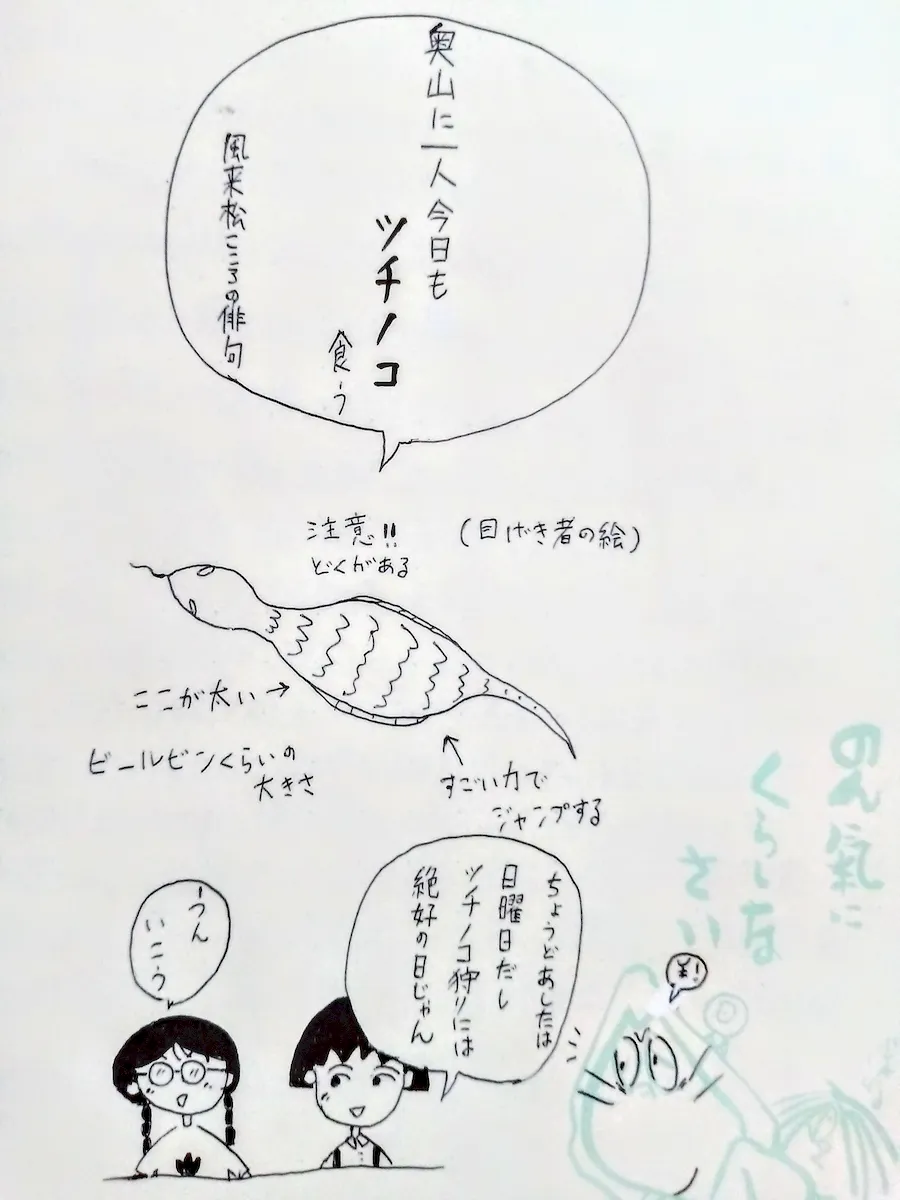 奥山に一人今日も
ツチノコ
食う
風来松こころの俳句
注意!!
どくがある
(目げき者の絵)
ここが太い→
ビールビンくらいの
大きさ
すごい力で
ジャンプする
ちょうどあしたは
日曜日だし
ツチノコ狩りには
絶好の日じゃん
うん
いこう
のん氣に
くらしな
さい